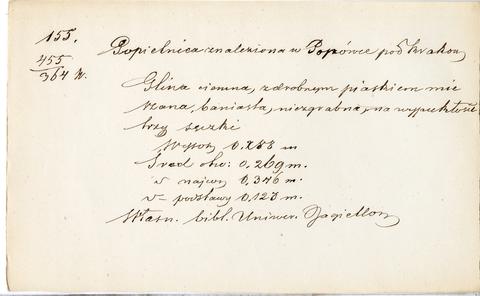 155.
Popielnica znaleziona w Popówce pod Krakow
455
364 N.
Glina ciemna, z drobnym piaskiem mie
szana, baniasta, niezgrabna, na wypukłości
trzy sęczki
Wysok 0.288 m
Śred otw: 0,269 m.
" najwy 0,346 m.
" podstawy 0.123 m.
Własn. bibl. Uniwer. Jagiellon